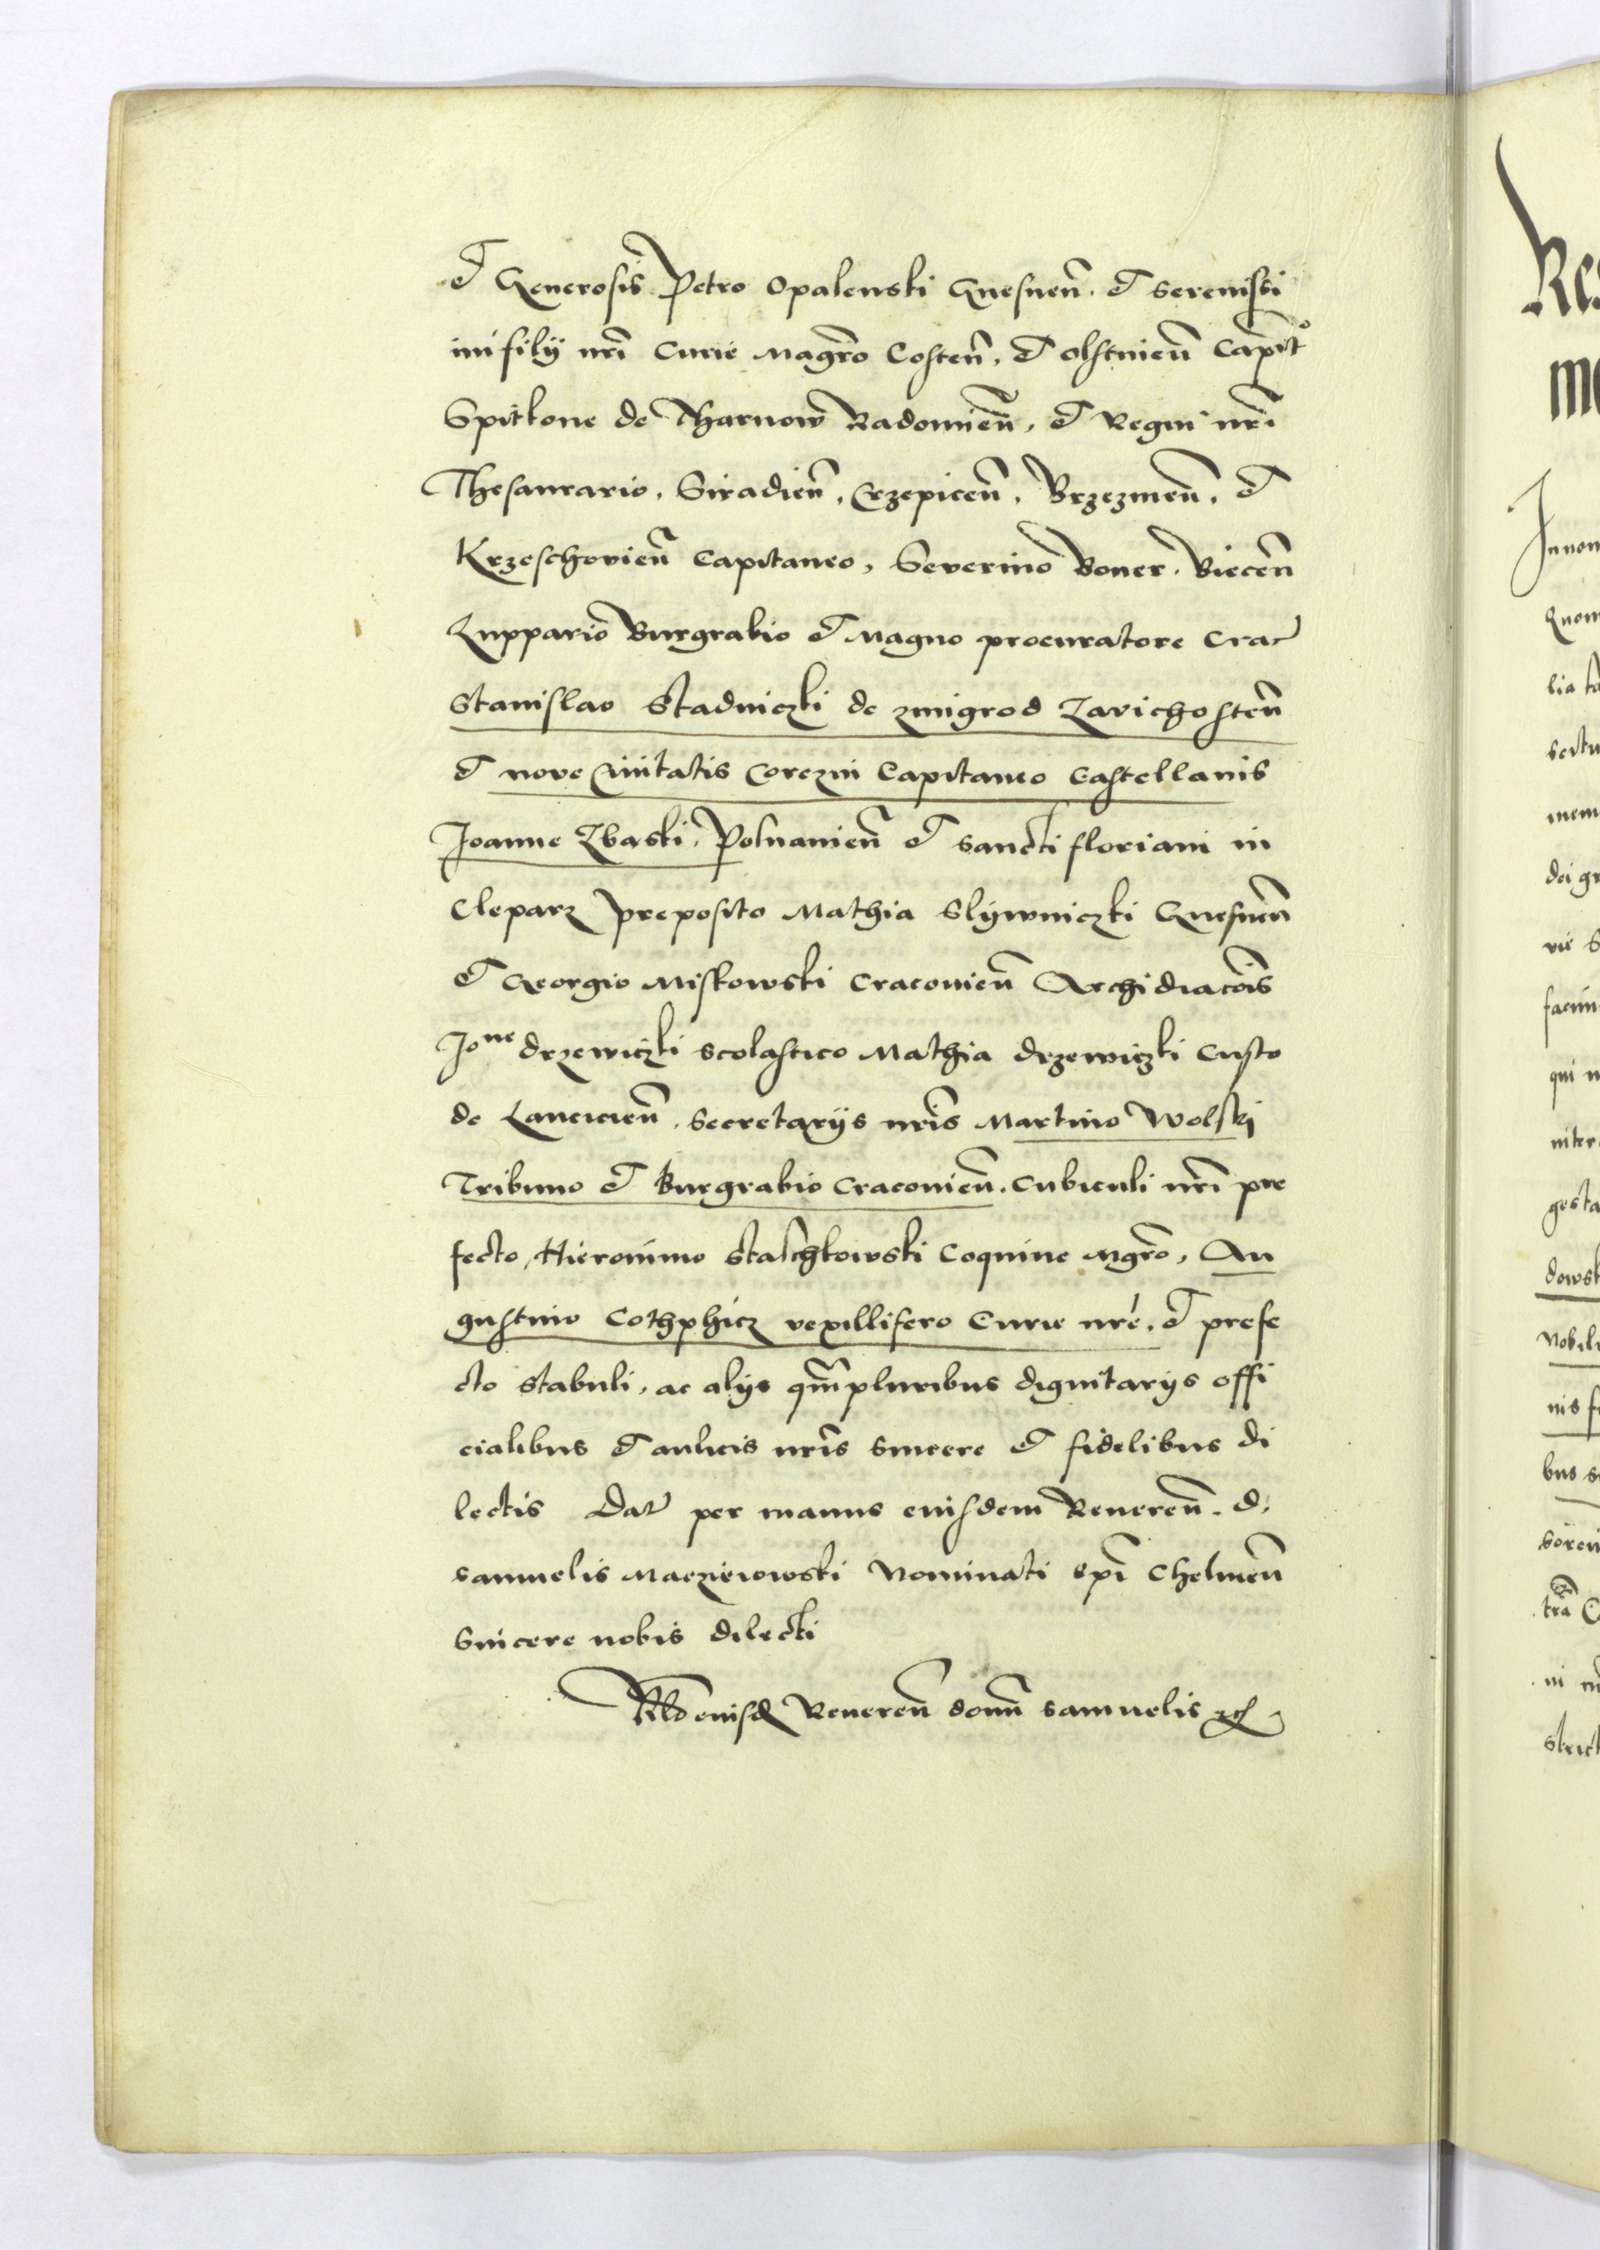 et Generosis Petro Opalenski Gnesnen̄. et serenissi
mi filij nr̄i Curie Magr̄o Costen̄. et olstinien̄ Capīt°
Spitkone de Tharnow Radomien̄. et Regni nr̄i
Thesaurario. Siradien̄. Crzepicen̄. Brzezinen̄. et
Krzeschovien̄ Capitaneo, Severino Boner. Biecen̄
Zuppario Burgrabio et Magno procuratore Crac
Stanislao Stadniczki de zmigrod Zavichosten̄
et nove Civitatis Corczin Capitaneo Castellanis
Joanne Zbaski. Posnanien̄ et sancti floriani in
Cleparz preposito Mathia Slywniczki Gnesnen̄
et Georgio Miskowski Craconien̄ Archidiacōis
Joⁿᵉ drzewiczki scolastico Mathia drzewiczki Custo
de Lancicien̄. Secretarijs nr̄is Martino Wolski
Tribuno et Burgrabio Craconien̄. Cubiculi nr̄i pre
fecto, Hieronimo Staschkowski Coquine Mgr̄o, Au
gustino Cothphicz vexillifero Curie nr̄e. et prefe
cto stabuli. ac alijs qm̄pluribus dignitarijs offi
cialibus et aulicis nr̄is sincere et fidelibus di
lectis Dat per manus eiusdem Reveren̄. d.
samuelis Macziewowski Nominati ep̄i Chelmen̄
sincere nobis dilecti
Rlō eiusd Reveren̄ domn̄ samuelis